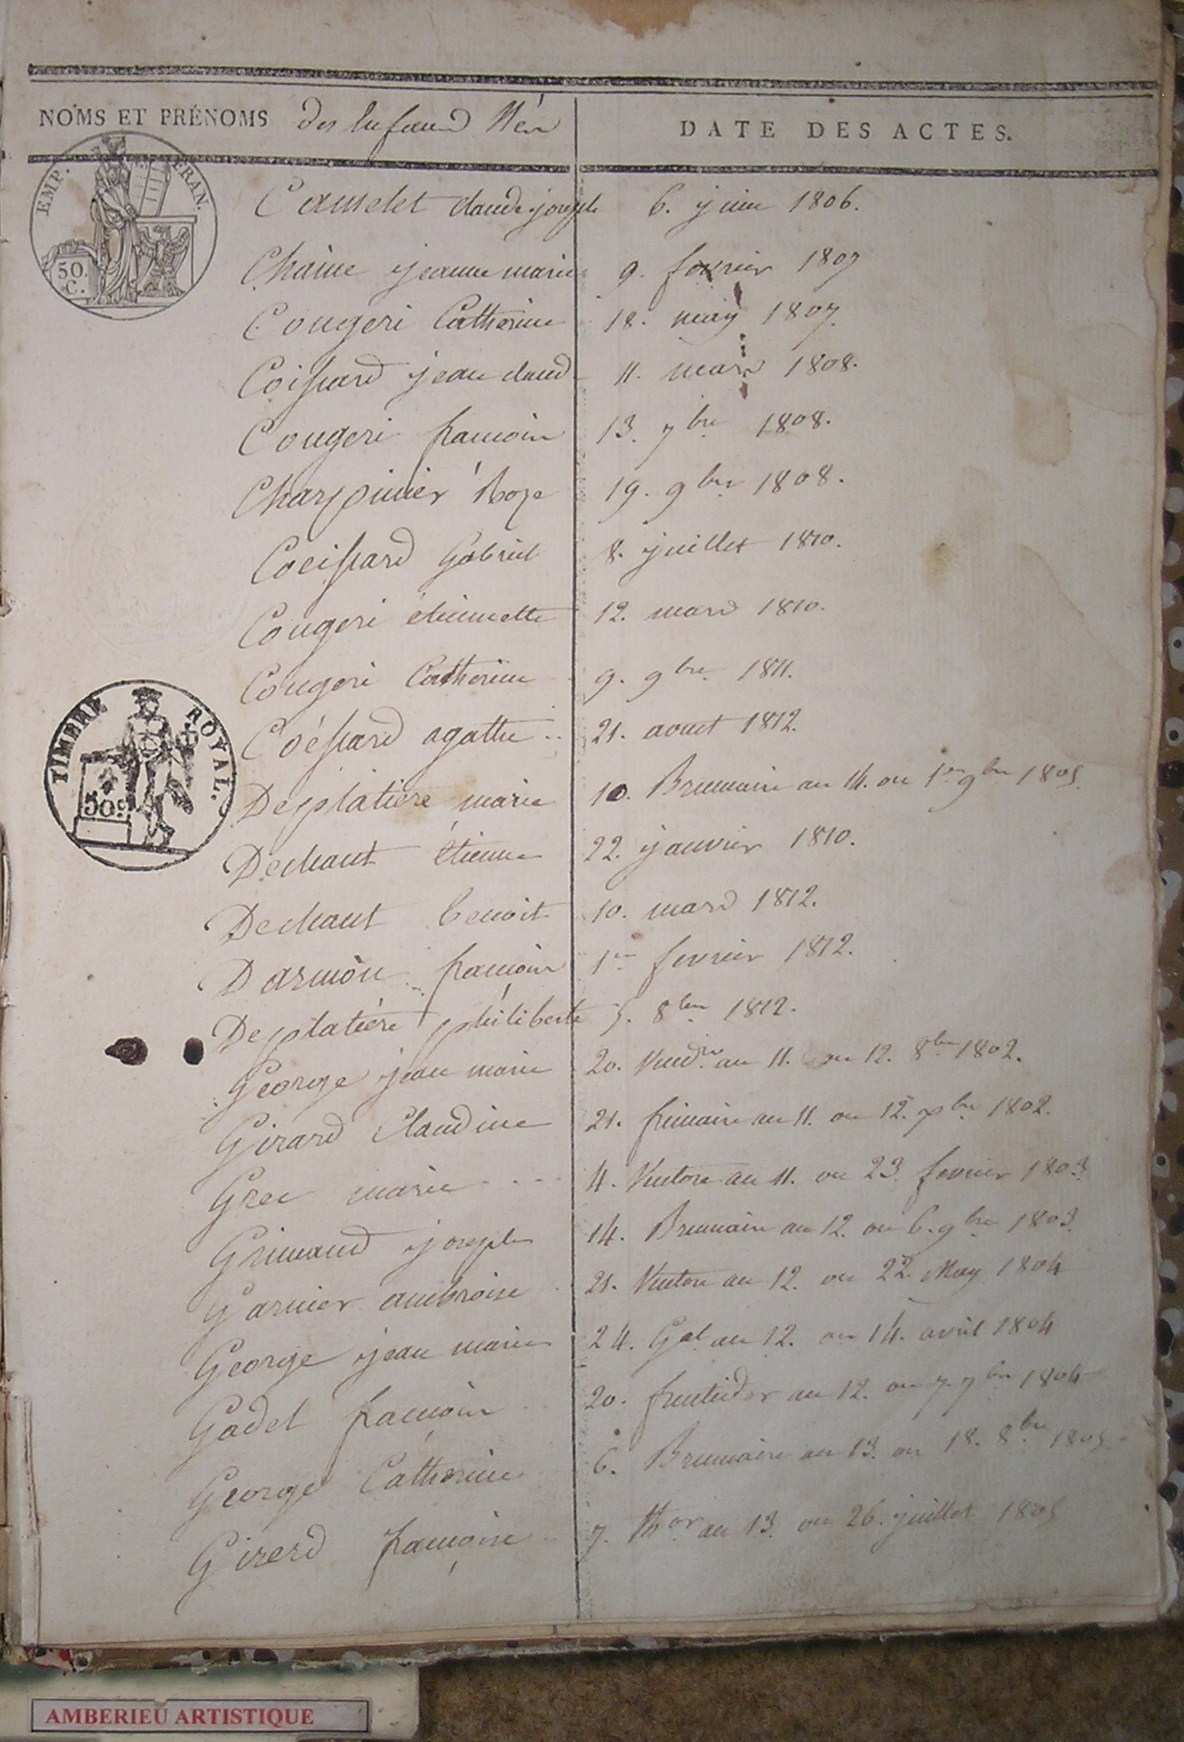 NOMS ET PRÉNOMS des Enfans Nés DATE DES ACTES.
EMP. FRAN.
50. C.
Camelet claude joseph 6. juin 1806.
Chaine jeanne marie 9. fevrier 1807
Cougeri Catherine 18. may 1807.
Coissard jean claud 11. mars 1808.
Cougeri francois 13. 7bre 1808.
Charpinier Roze 19. 9bre 1808.
Coeissard Gabriel 8. juillet 1810.
Cougeri étiennette 12. mars 1810.
Cougeri Catherine 9. 9bre 1811.
Coéssard agathe 21. aout 1812.
TIMBRE ROYAL.
50c
Desplatiere marie 10. Brumaire an 14. ou 1er 9bre 1805.
Dechaut étienne 22. janvier 1810.
Dechaut benoit 10. mars 1812.
Darmon françois 1er fevrier 1812.
Deplatiére philiberte 5. 8bre 1812.
George jean marie 20. Vendre an 11. ou 12. 8bre 1802.
Girard Claudine 21. frimaire an 11. ou 12. xbre 1802.
Grec marie 4. Ventose an 11. ou 23 fevrier 1803.
Grimaud joseph 14. Brumaire an 12. ou 6. 9bre 1803.
Garnier ambroise 21. an 12. ou 22. May 1804
George jean marie 24. Gal an 12. ou 14. avril 1804
Gadel françois 20. fructidor an 12. ou 7. 7bre 1804
George Catherine 6. Brumaire an 13. ou 18. 8bre
Girerd françoise 7. thor an 13. ou 26. juillet 1805
AMBERIEU ARTISTIQUE